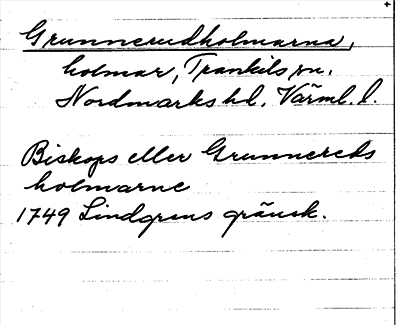 Grunnerudholmarna,
holmar, Trankils sn.
Nordmarks hd. Värml. l.
Biskops eller Grunnereds
holmarne
1749 Lindgrens gränsk.